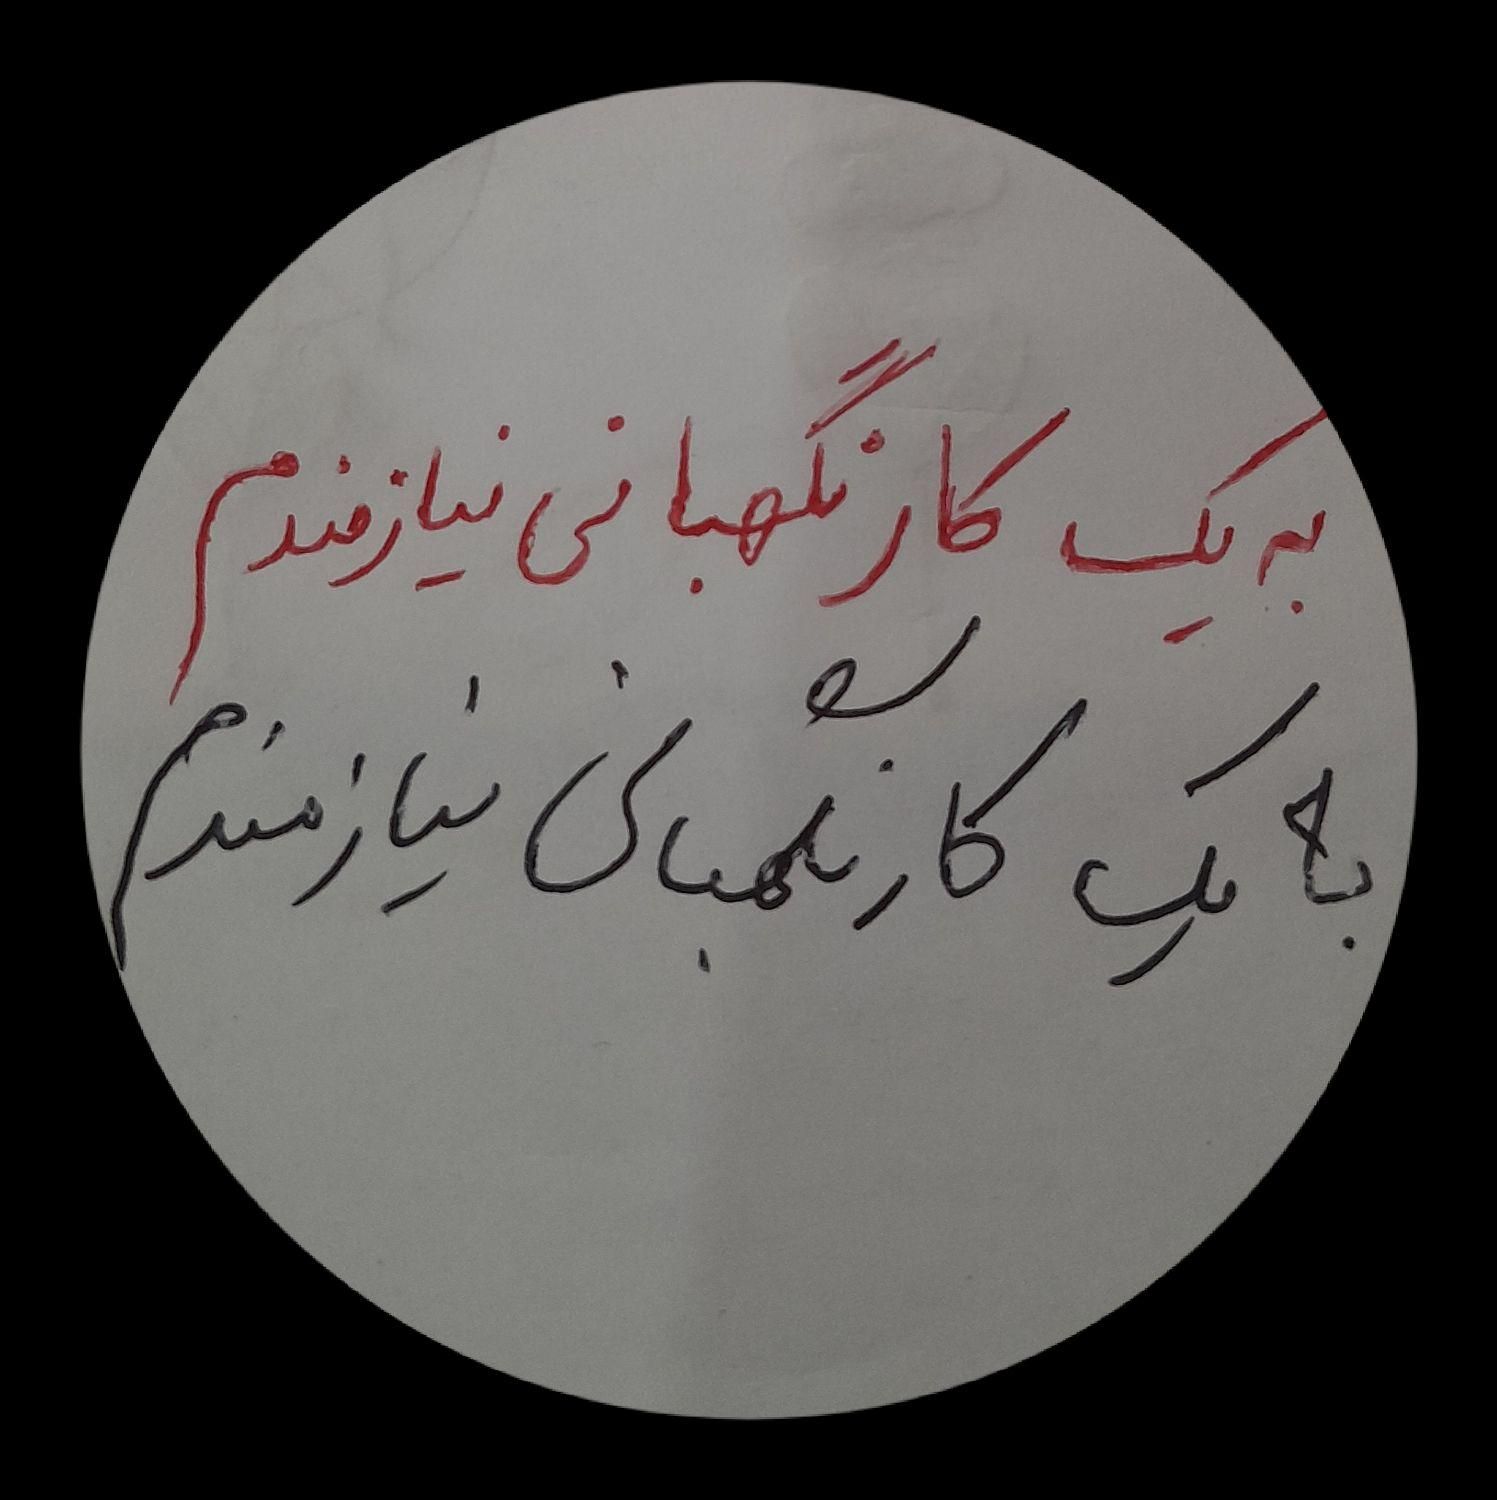 به یک کار نگهبانی نیازمندم
به یک کار نگهبانی نیازمندم